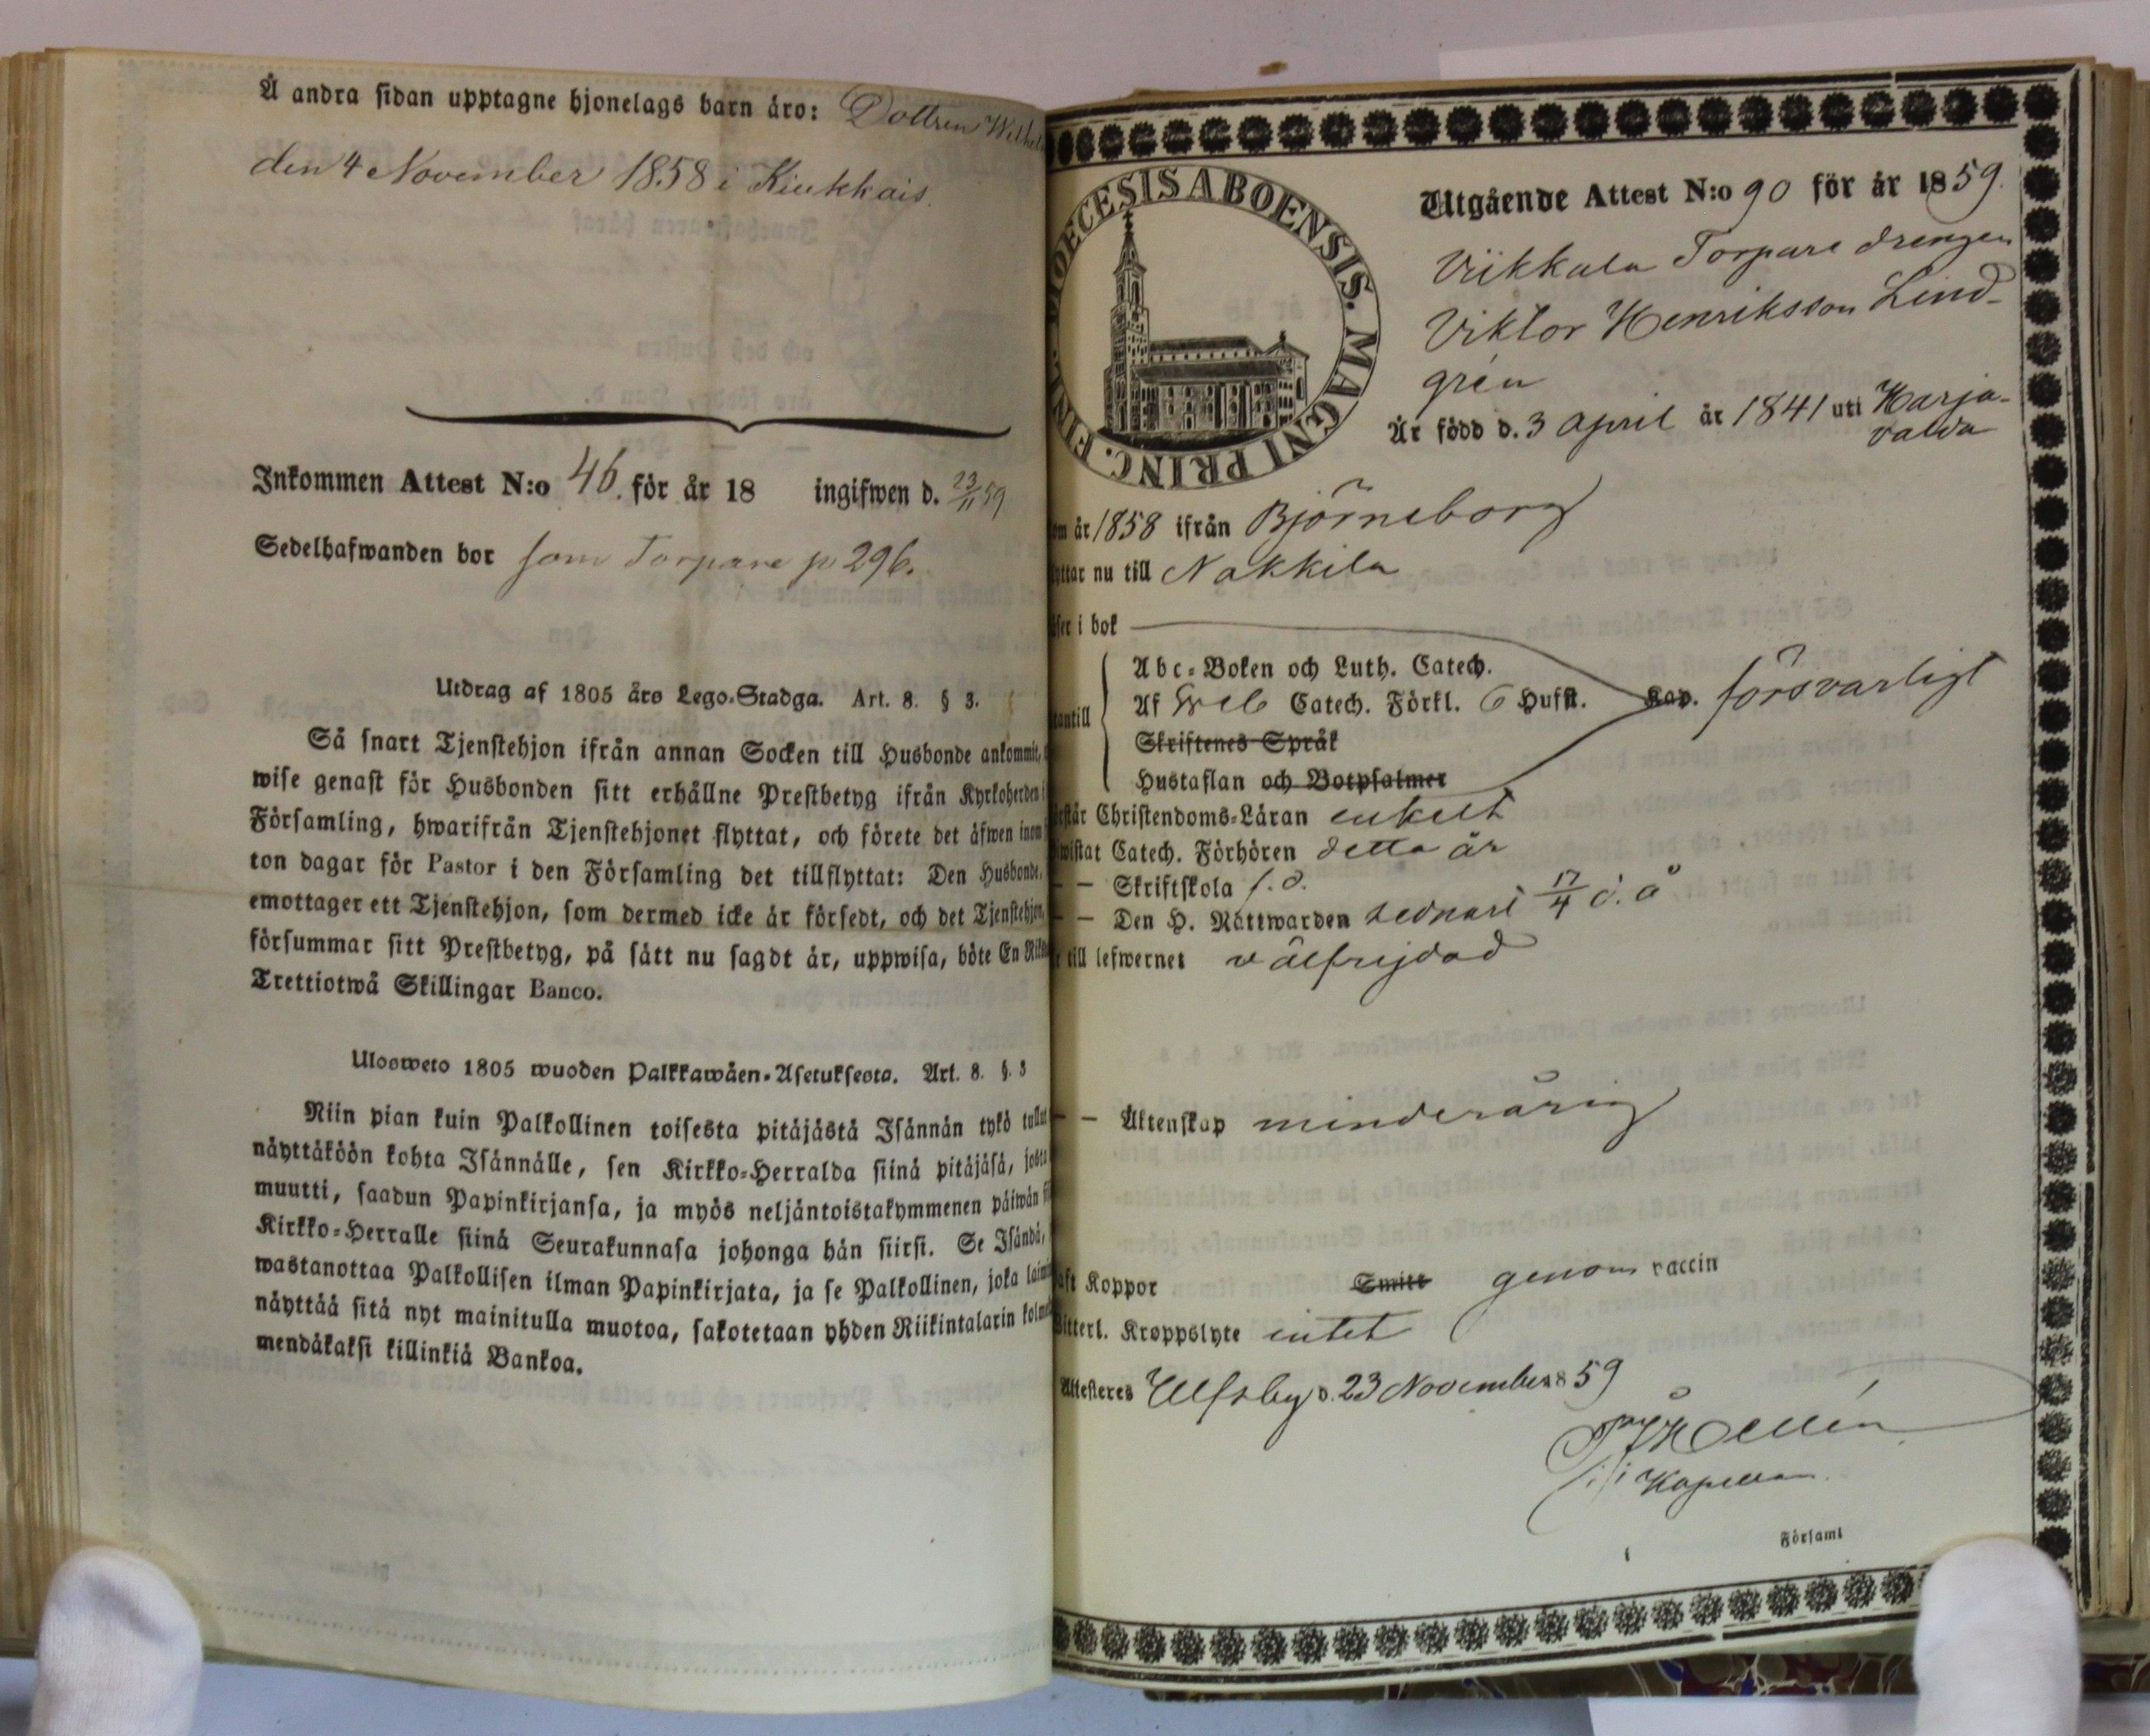 Å andra sidan upptagne hjonelags barn äro: Dottren
den 4 November 1858 i Kiukkais.
Inkommen Attest N:o 46. för år 18 ingifwen d. 23/11 59
Sedelhafwanden bor som Torpare p 296.
Utdrag af 1805 års Lego-Stadga. Art. 8. § 3.
Så snart Tjenstehjon ifrån annan Socken till Husbonde ankommit,
wise genast för Husbonden sitt erhållne Prestbetyg ifrån Kyrkoherden i
Församling, hwarifrån Tjenstehjonet flyttat, och förete det äfwen inom
ton dagar för Pastor i den Församling det tillflyttat: Den Husbonde,
emottager ett Tjenstehjon, som dermed icke är försedt, och det Tjenstehjon,
försummar sitt Prestbetyg, på sätt nu sagdt är, uppwisa, böte En
Trettiotwå Skillingar Banco.
Ulosweto 1805 wuoden Palkkawäen-Asetuksesta. Art. 8. §. 3
Niin pian kuin Palkollinen toisesta pitäjästä Isännän tykö tullut
näyttäköön kohta Isännälle, sen Kirkko-Herralda siinä pitäjäsä, josta
muutti, saadun Papinkirjansa, ja myös neljäntoistakymmenen päiwän
Kirkko-Herralle siinä Seurakunnasa johonga hän siirsi. Se Isändä,
wastanottaa Palkollisen ilman Papinkirjata, ja se Palkollinen, joka
näyttää sitä nyt mainitulla muotoa, sakotetaan yhden Riikintalarin
mendäkaksi killinkiä Bankoa.
DIOECESIS ABOENSIS. MAGNI PRINC. FINL.
Utgående Attest N:o 90 för år 1859.
Viikkala Torpare drengen
Viktor Henriksson Lind-
grén
Är född d. 3 April år 1841 uti Harja-
valda
om år 1858 ifrån Björneborg
lyttar nu till Nakkila
äser i bok
Abc-Boken och Luth. Catech.
tantill Af Catech. Förkl. 6 Hufst. Kap. försvarligt
Skriftenes Språk
Hustaflan och Botpsalmer
örstår Christendoms-Läran enkelt
wistat Catech. Förhören detta år
— — Skriftskola f. d.
— — Den H. Nattwarden sednast 17/4 d. å
r till lefwernet välfrejdad
— — Äktenskap minderårig
aft Koppor Smitt genom vaccin
itterl. Kroppslyte intet
Attesteres Ulfsby d. 23 November 1859
Kapellan.
i Församl